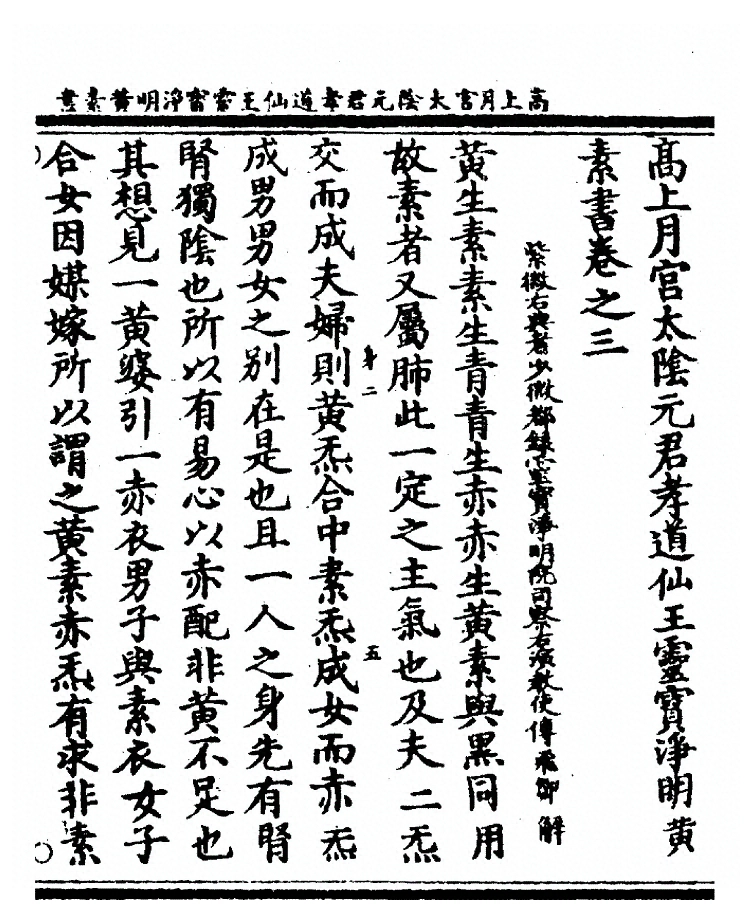 高上月宮太陰元君孝道仙王靈寶淨明黃素書
高上月宮太陰元君孝道仙王靈寶淨明黃
素書卷之三
紫微右典者少微都錄靈寶淨明院司察右演教使傅飛卿解
黃生素素生青青生赤赤生黃素與黑同用
故素者又屬肺此一定之主氣也及夫二炁
交而成夫婦則黃炁合中素炁成女而赤炁
身二
五
成男男女之別在是也且一人之身先有腎
腎獨陰也所以有易心以赤配非黃不足也
其想見一黃婆引一赤衣男子與素衣女子
合女因媒嫁所以謂之黃素赤炁有求非素